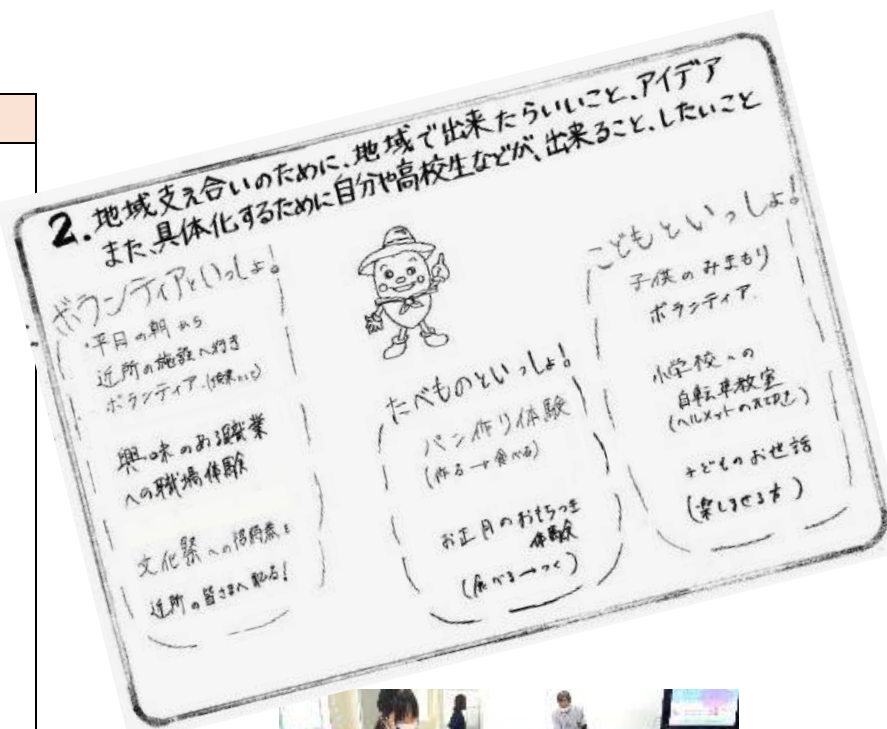 2.地域支え合いのために、地域で出来たらいいこと、アイデア
また、具体化するために自分や高校生などが、出来ること、したいこと
ボランティアといっしょ!
・平日の朝から
近所の施設へ行き
ボランティア
興味のある職業
への職場体験
文化祭への招待券を
近所の皆さまへ配る!
たべものといっしょ!
パン作り体験
(作る→食べる)
お正月のおもちつき
体験
(食べる→つく)
こどもといっしょ!
子供のみまもり
ボランティア.
小学校への
自転車教室
(ヘルメットの大切さ)
子どものお世話
(楽しませる方)